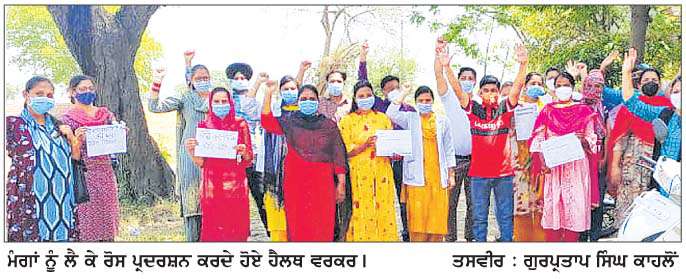 ਮੰਗਾਂ ਨੂੰ ਲੈ ਕੇ ਰੋਸ ਪ੍ਰਦਰਸ਼ਨ ਕਰਦੇ ਹੋਏ ਹੈਲਥ ਵਰਕਰ। ਤਸਵੀਰ : ਗੁਰਪ੍ਰਤਾਪ ਸਿੰਘ ਕਾਹਲੋਂ